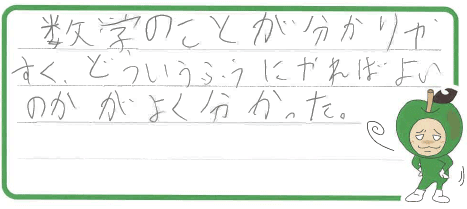 数学のことが分かりや
すく、どういうふうにやればよい
のかがよく分かった。